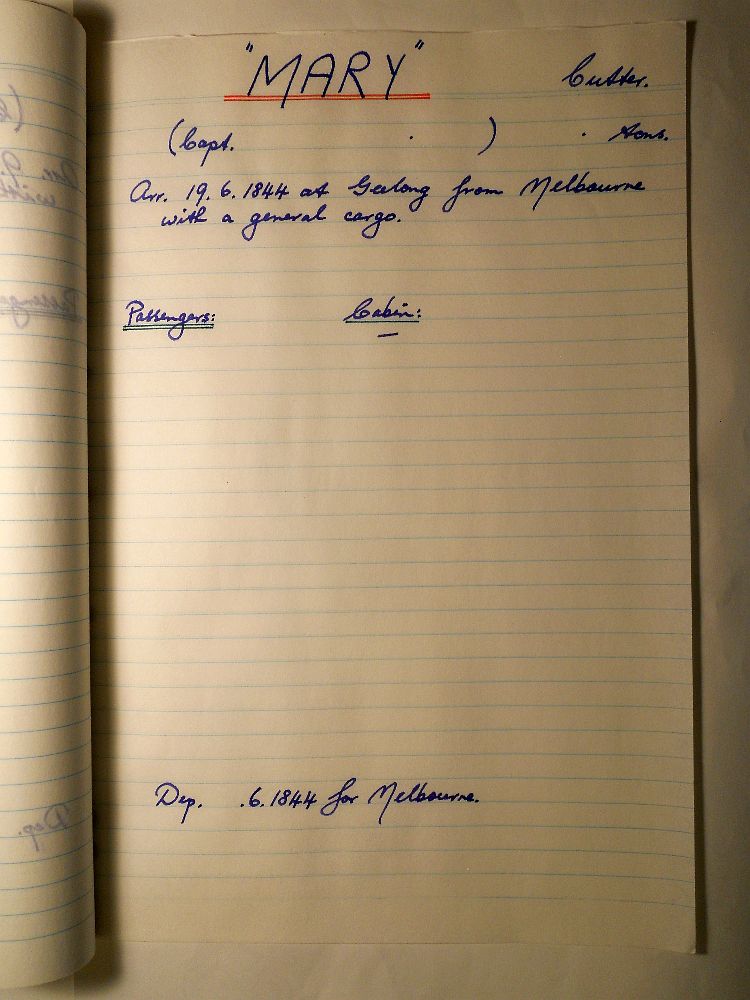 "MARY" Cutter.
(Capt. . ) . tons.
Arr. 19.6.1844 at Geelong from Melbourne
with a general cargo.
Passengers: Cabin:
—
Dep. .6.1844 for Melbourne.